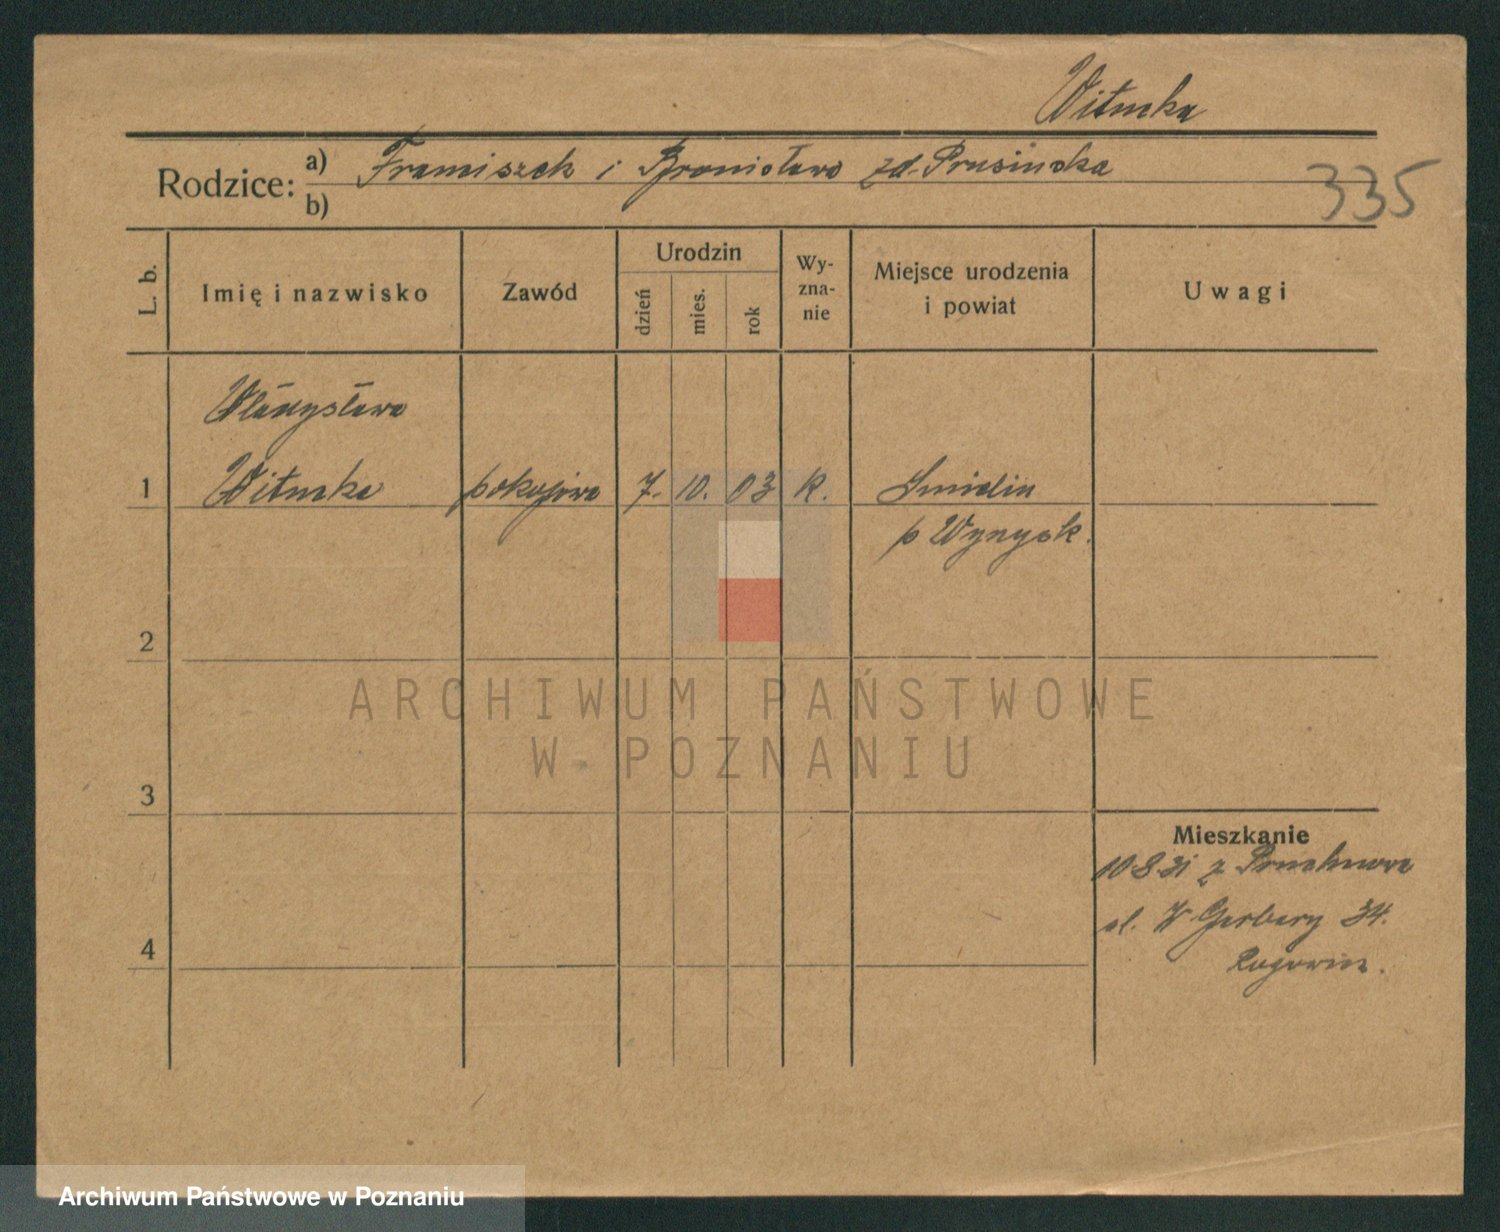 Witucka
Rodzice: a) Franciszek i Bronisława zd. Prusinska
b)
335
L. b.
Imię i nazwisko
Zawód
Urodzin
dzień
mies.
rok
Wy-
zna-
nie
Miejsce urodzenia
i powiat
Uwagi
Władysława
1 Witucka pokojowa 7. 10. 03 K. Smielin
p Wyrzysk.
2
3
4
Mieszkanie
10 8 31 z
ul. W Garbary 34.
ARCHIWUM PAŃSTWOWE
W POZNANIU
Archiwum Państwowe w Poznaniu